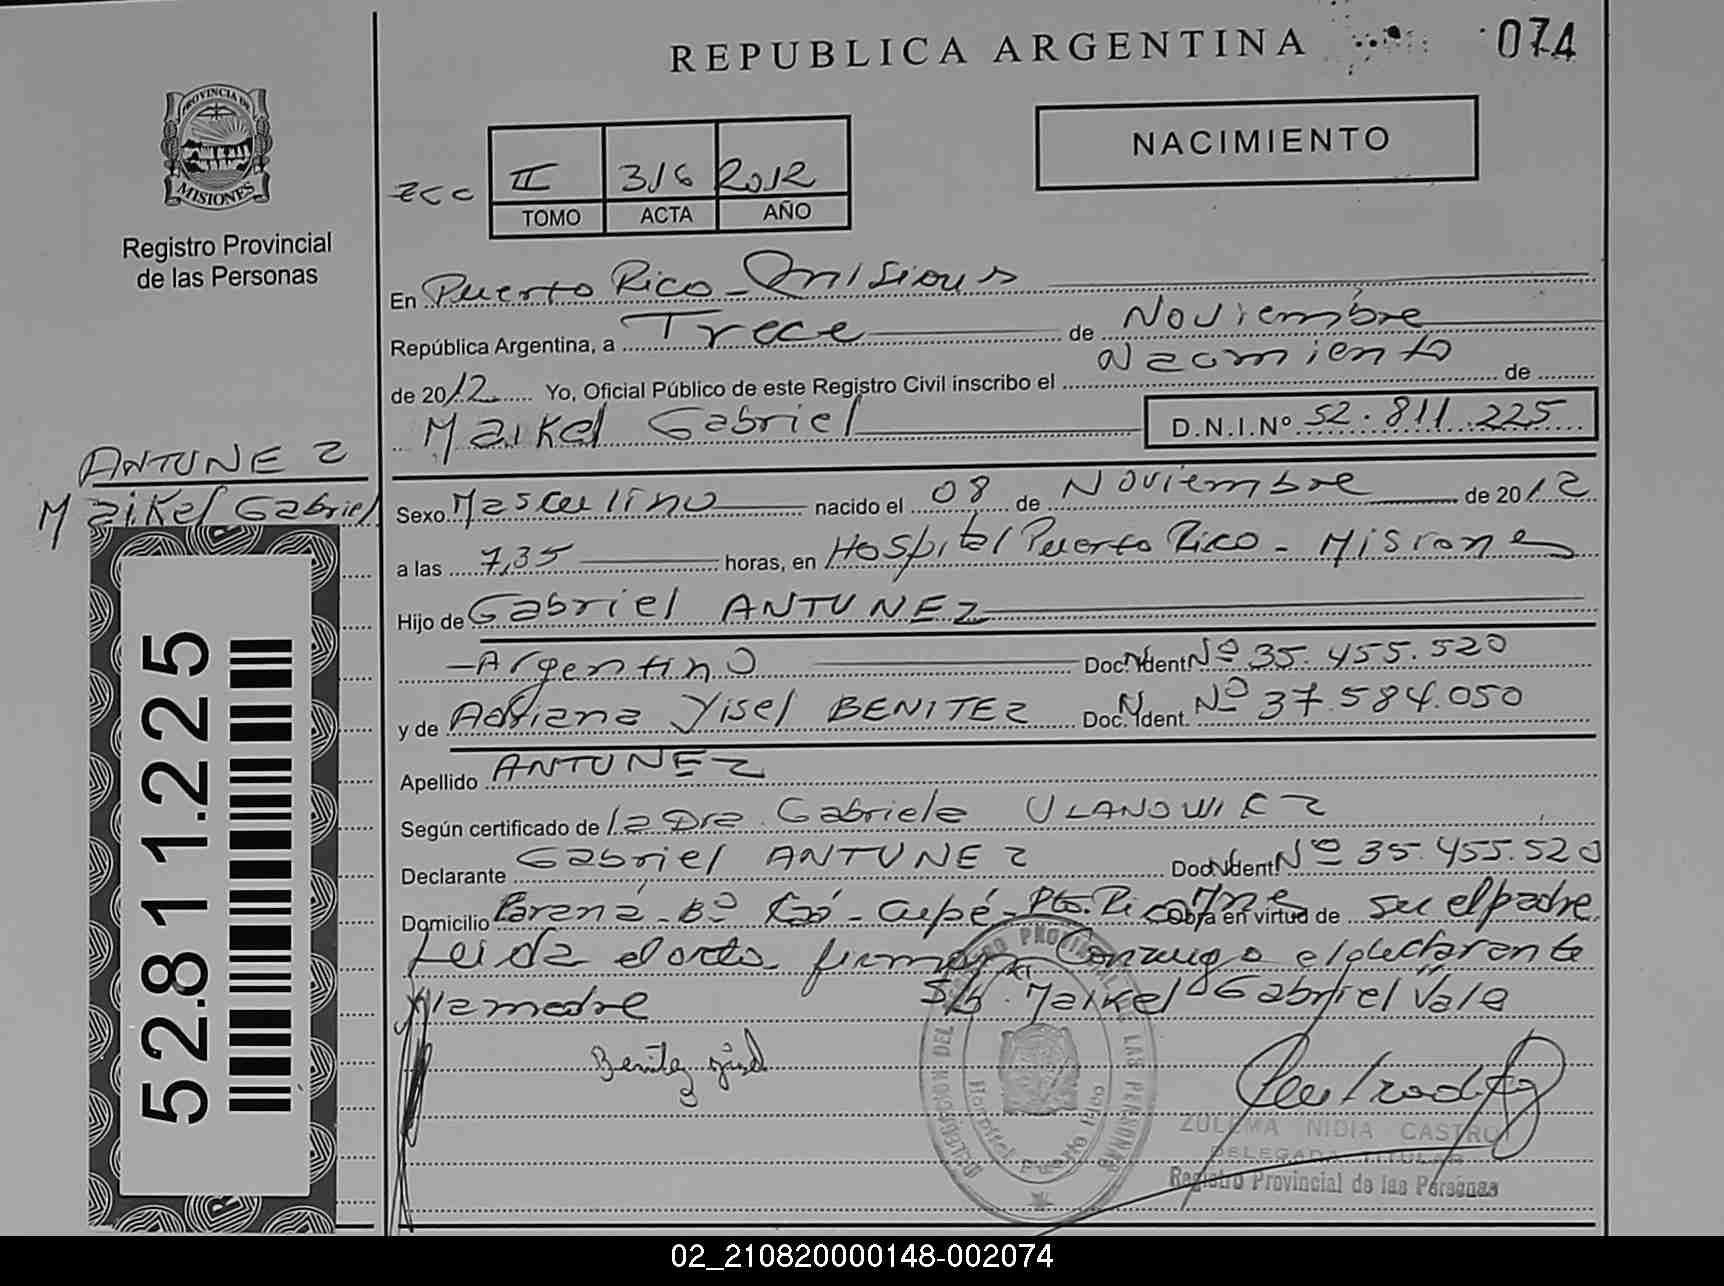 REPUBLICA ARGENTINA
074
PROVINCIA DE
MISIONES
Registro Provincial
de las Personas
NACIMIENTO
ZCC II 316 2012
TOMO ACTA AÑO
En Puerto Rico - Misiones
República Argentina, a Trece de Noviembre
de 2012 Yo, Oficial Público de este Registro Civil inscribo el Nacimiento de
Maikel Gabriel D.N.I.Nº 52.811.225
ANTUNEZ
Maikel Gabriel
Sexo Masculino nacido el 08 de Noviembre de 2012
a las 7,35 horas, en Hospital Puerto Rico - Misiones
Hijo de Gabriel ANTUNEZ
- Argentino Doc. Ident. Nº 35.455.520
y de Adriana Yisel BENITEZ Doc. Ident. Nº 37.584.050
Apellido ANTUNEZ
Según certificado de la Dra. Gabriela ULANOWIEZ
Declarante Gabriel ANTUNEZ Doc. Ident. Nº 35.455.520
Domicilio Paraná - Bº - Pto. Rico Mnes Obra en virtud de su el padre
Leida el acta firman conmigo el declarante
y la madre S/b. Maikel Gabriel Vale
Benitez Yisel
52.811.225
DELEGACION DEL REGISTRO PROVINCIAL DE LAS PERSONAS
Hospital Puerto Rico
ZULEMA NIDIA CASTRO
DELEGADA TITULAR
Registro Provincial de las Personas
02_210820000148-002074